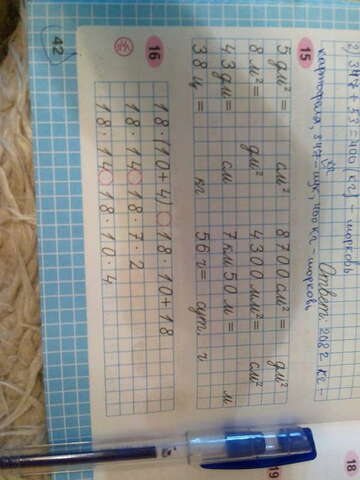 2) 347 + 53 = 400 (кг) – морковь
Ответ: 2082 кг –
картофеля, 347 кг – лук, 400 кг – морковь
15
5 дм² = см² 8700 см² = дм²
8 м² = дм² 4300 мм² = см²
43 дм = см 7 км 50 м = м
38 ц = кг 56 ч = сут. ч
16
18 · (10 + 4) 18 · 10 + 18
18 · 14 18 · 7 · 2
18 · 14 18 · 10 · 4
42
18
19